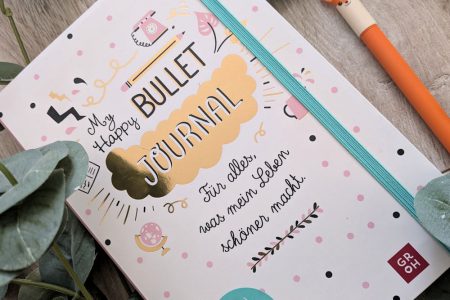 My
Happy
BULLET
JOURNAL
Für alles,
was mein Leben
schöner macht.
GR
OH